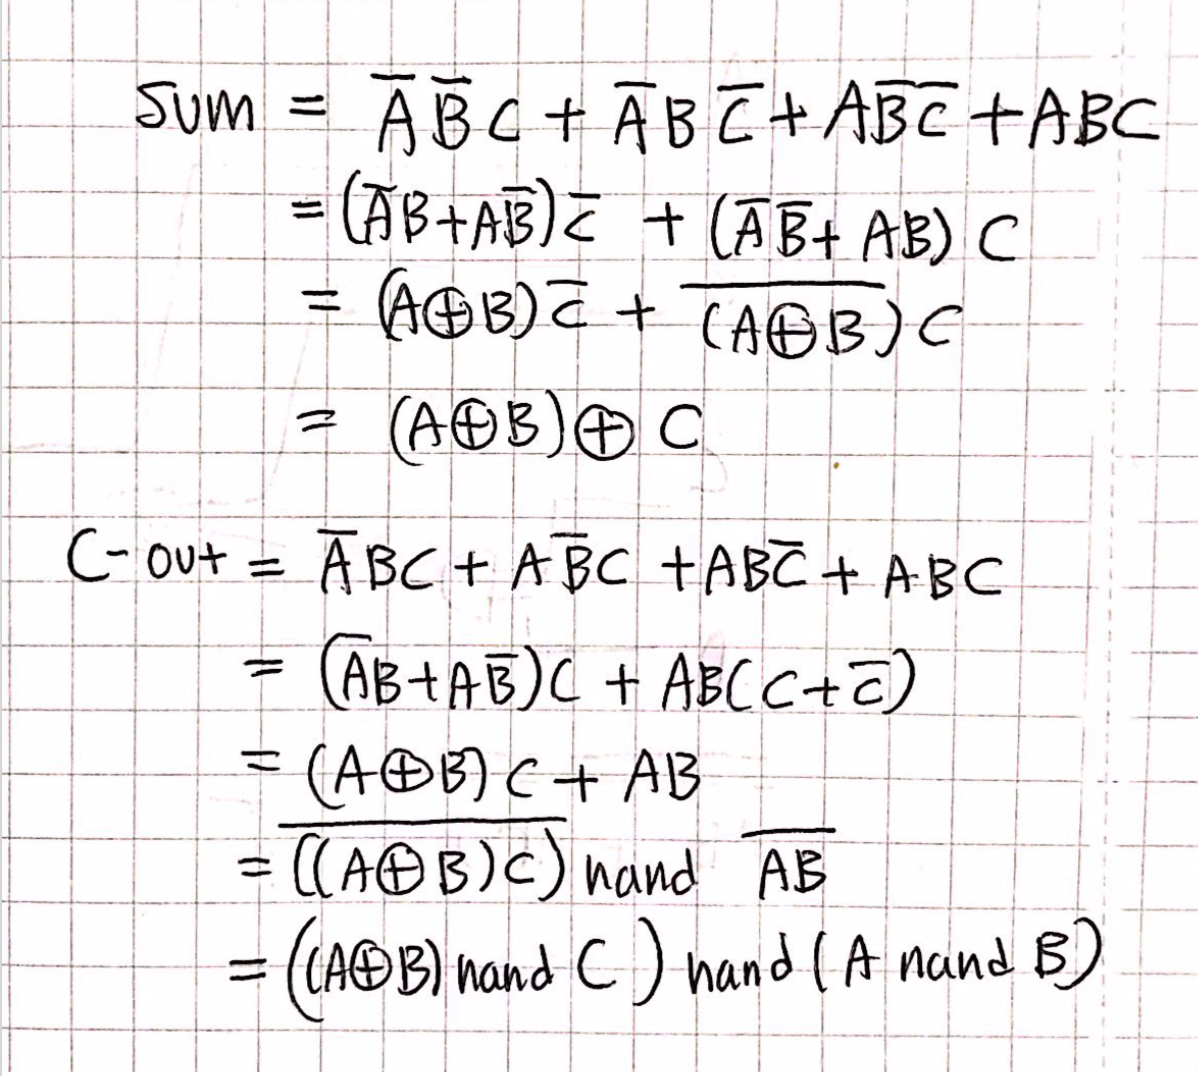 Sum = A̅ B̅ C + A̅ B C̅ + A B̅ C̅ + ABC
= (A̅B + AB̅)C̅ + (A̅B̅ + AB) C
= (A⊕B)C̅ + \overline{(A⊕B)} C
= (A⊕B)⊕ C
C-out = A̅BC + AB̅C + ABC̅ + ABC
= (A̅B + AB̅)C + AB(C + C̅)
= (A⊕B)C + AB
= \overline{((A⊕B)C)} nand \overline{AB}
= ((A⊕B) nand C) nand (A nand B)